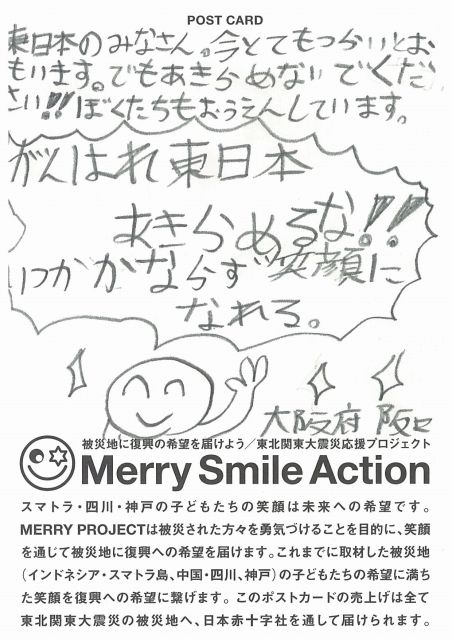 POST CARD
東日本のみなさん。今とてもつらいとお
もいます。でもあきらめないでくだ
さい!!ぼくたちもおうえんしています。
がんばれ東日本
あきらめるな!!
いつかかならず笑顔に
なれる。
大阪府
被災地に復興の希望を届けよう/東北関東大震災応援プロジェクト
Merry Smile Action
スマトラ・四川・神戸の子どもたちの笑顔は未来への希望です。
MERRY PROJECTは被災された方々を勇気づけることを目的に、笑顔
を通じて被災地に復興への希望を届けます。これまでに取材した被災地
(インドネシア・スマトラ島、中国・四川、神戸)の子どもたちの希望に満ち
た笑顔を復興への希望に繋げます。このポストカードの売上げは全て
東北関東大震災の被災地へ、日本赤十字社を通して届けられます。